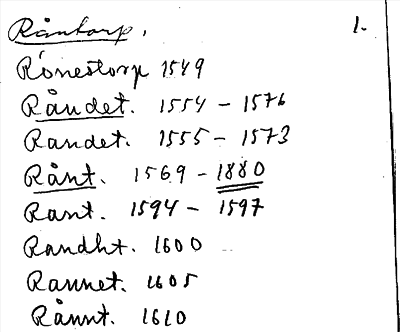 Råntorp. 1.
Rönestorp 1549
Råndet. 1554 - 1576
Randet. 1555 - 1573
Rånt. 1569 - 1880
Rant. 1594 - 1597
Randht. 1600
Rannet. 1605
Rånnt. 1610